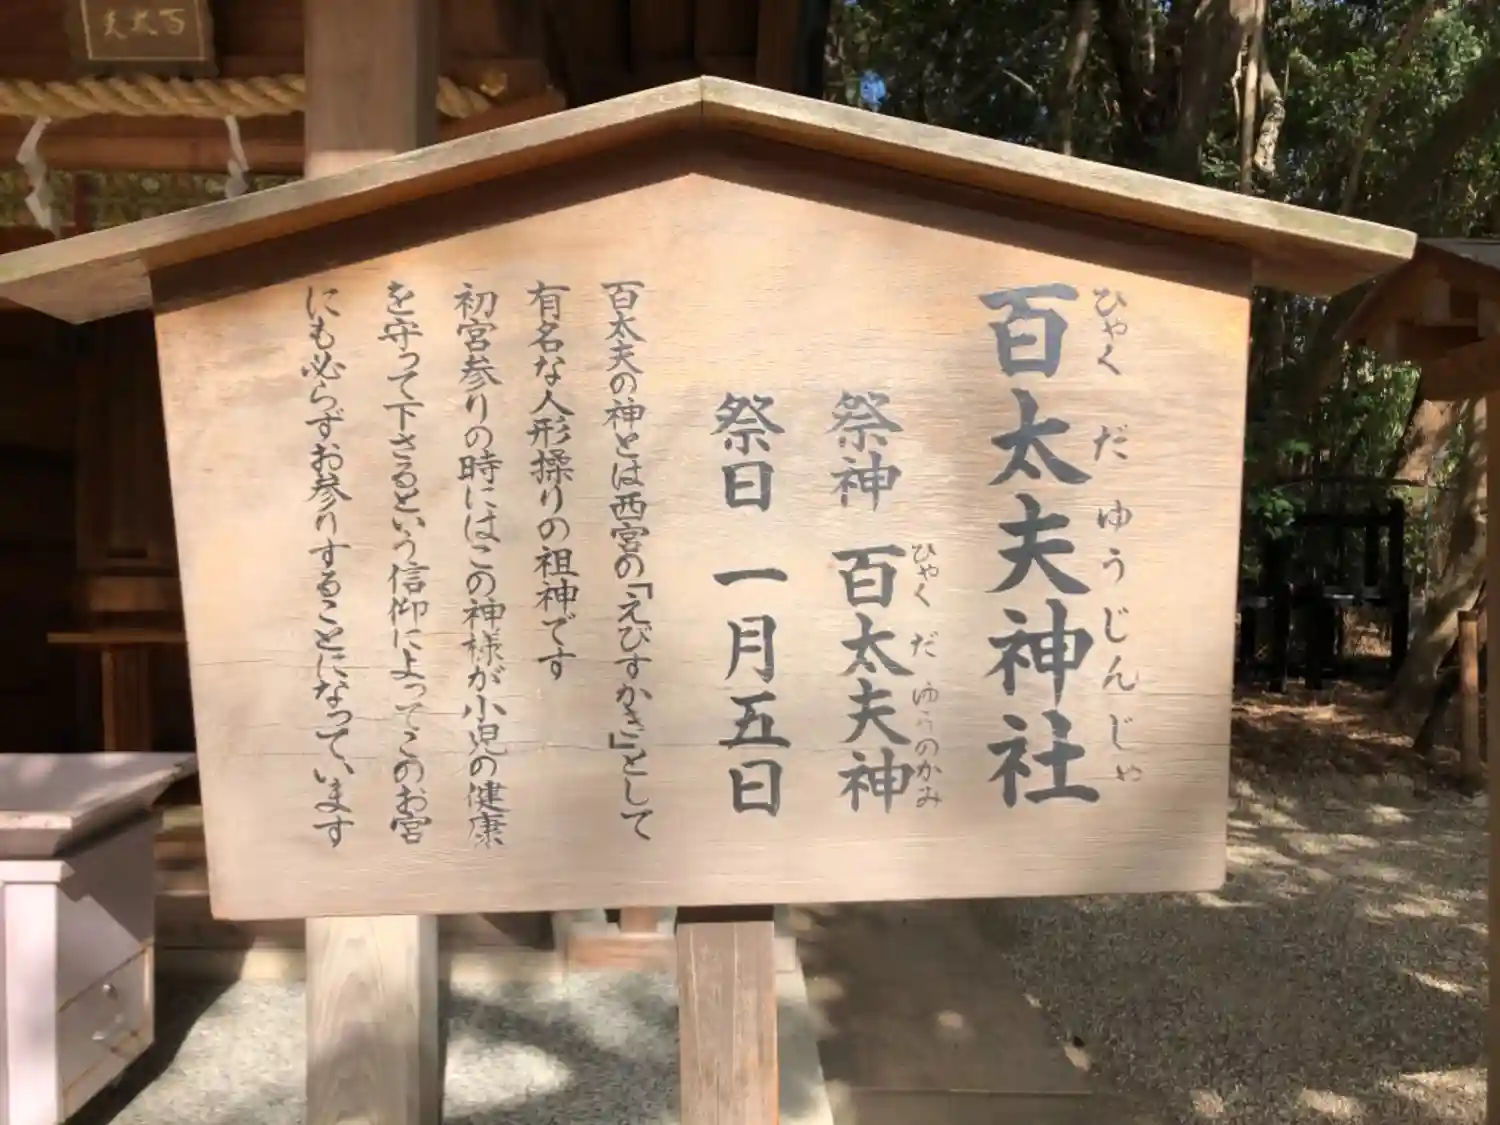 百太夫
百太夫神社
ひゃくだゆうじんじゃ
祭神 百太夫神
ひゃくだゆうのかみ
祭日 一月五日
百太夫の神とは西宮の「えびすかき」として
有名な人形操りの祖神です
初宮参りの時にはこの神様が小児の健康
を守って下さるという信仰によってこのお宮
にも必らずお参りすることになっています